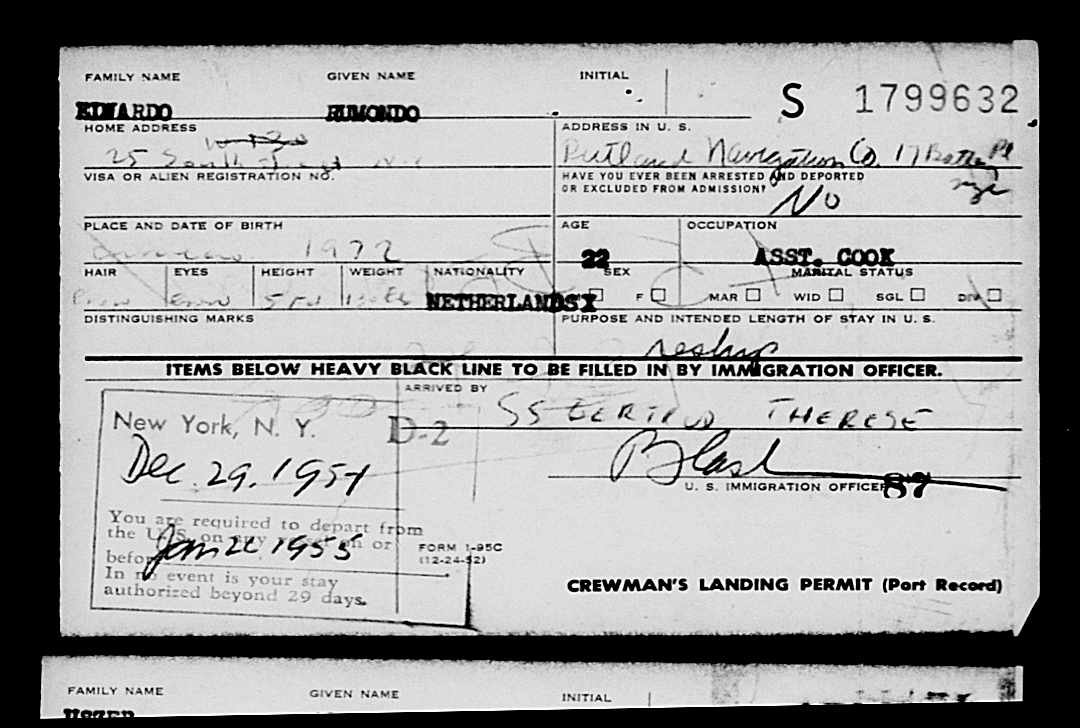 FAMILY NAME GIVEN NAME INITIAL
S 1799632
EDUARDO RUMONDO
HOME ADDRESS ADDRESS IN U. S.
25 South Navigation Co. 17 Pl
VISA OR ALIEN REGISTRATION NO. HAVE YOU EVER BEEN ARRESTED AND DEPORTED
OR EXCLUDED FROM ADMISSION?
nyc
No
PLACE AND DATE OF BIRTH AGE OCCUPATION
1932 22 ASST. COOK
HAIR EYES HEIGHT WEIGHT NATIONALITY SEX MARITAL STATUS
NETHERLANDS X F MAR WID SGL DIV
DISTINGUISHING MARKS PURPOSE AND INTENDED LENGTH OF STAY IN U. S.
reship
ITEMS BELOW HEAVY BLACK LINE TO BE FILLED IN BY IMMIGRATION OFFICER.
ARRIVED BY
SS GERTRUD THERESE
New York, N. Y. D-2
Dec. 29. 1954
U. S. IMMIGRATION OFFICER 87
You are required to depart from
the U.S. on any vessel on or
before Jan 1955
In no event is your stay
authorized beyond 29 days.
FORM I-95C
(12-24-52)
CREWMAN'S LANDING PERMIT (Port Record)
FAMILY NAME GIVEN NAME INITIAL